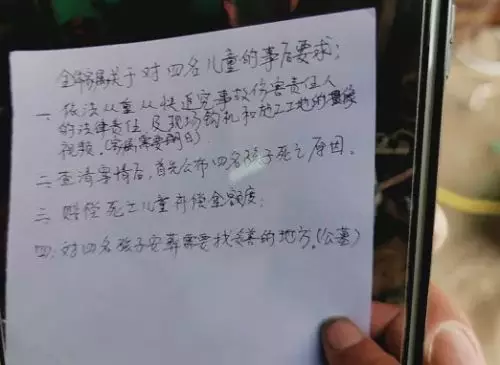 全体家属关于对四名儿童的事后要求:
一、依法从重从快追究事故伤害责任人
的法律责任及现场钩机和施工工地的摄像
视频。(家属需要明白)
二、查清事情后,首先公布四名孩子死亡原因。
三、赔偿死亡儿童补偿金额度;
四:对四名孩子安葬需要找妥善的地方。(公墓)